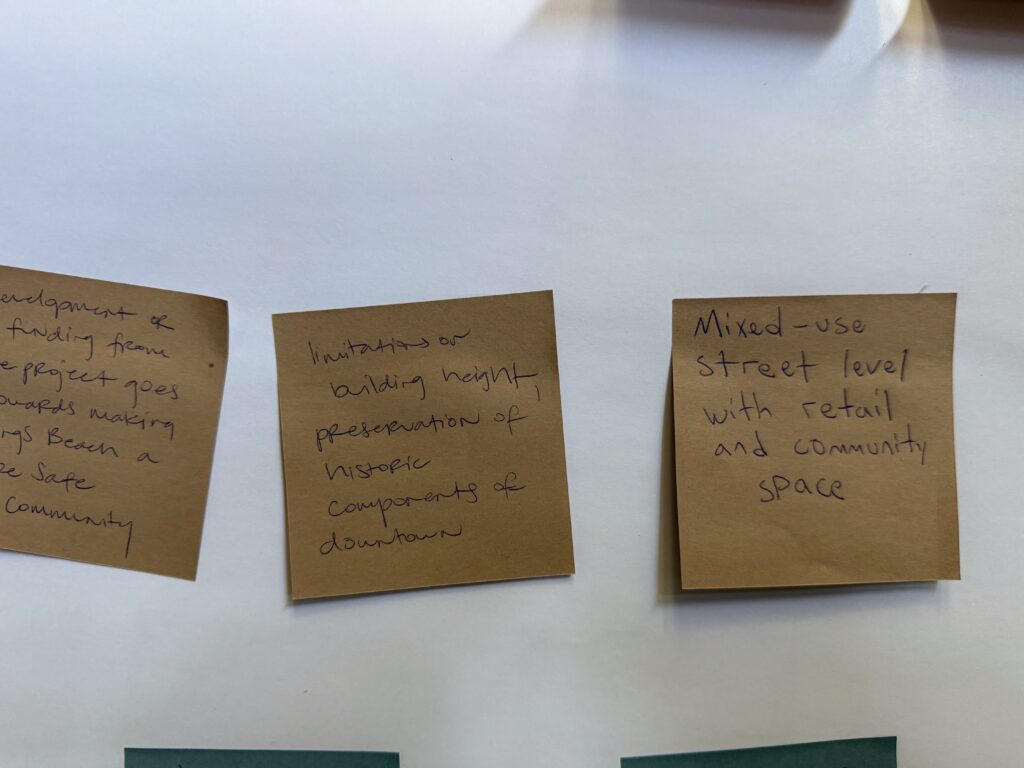 evelopment or
funding from
e project goes
owards making
ngs Beach a
re Safe
Community
limitations on
building height,
preservation of
historic
components of
downtown
Mixed-use
street level
with retail
and community
space